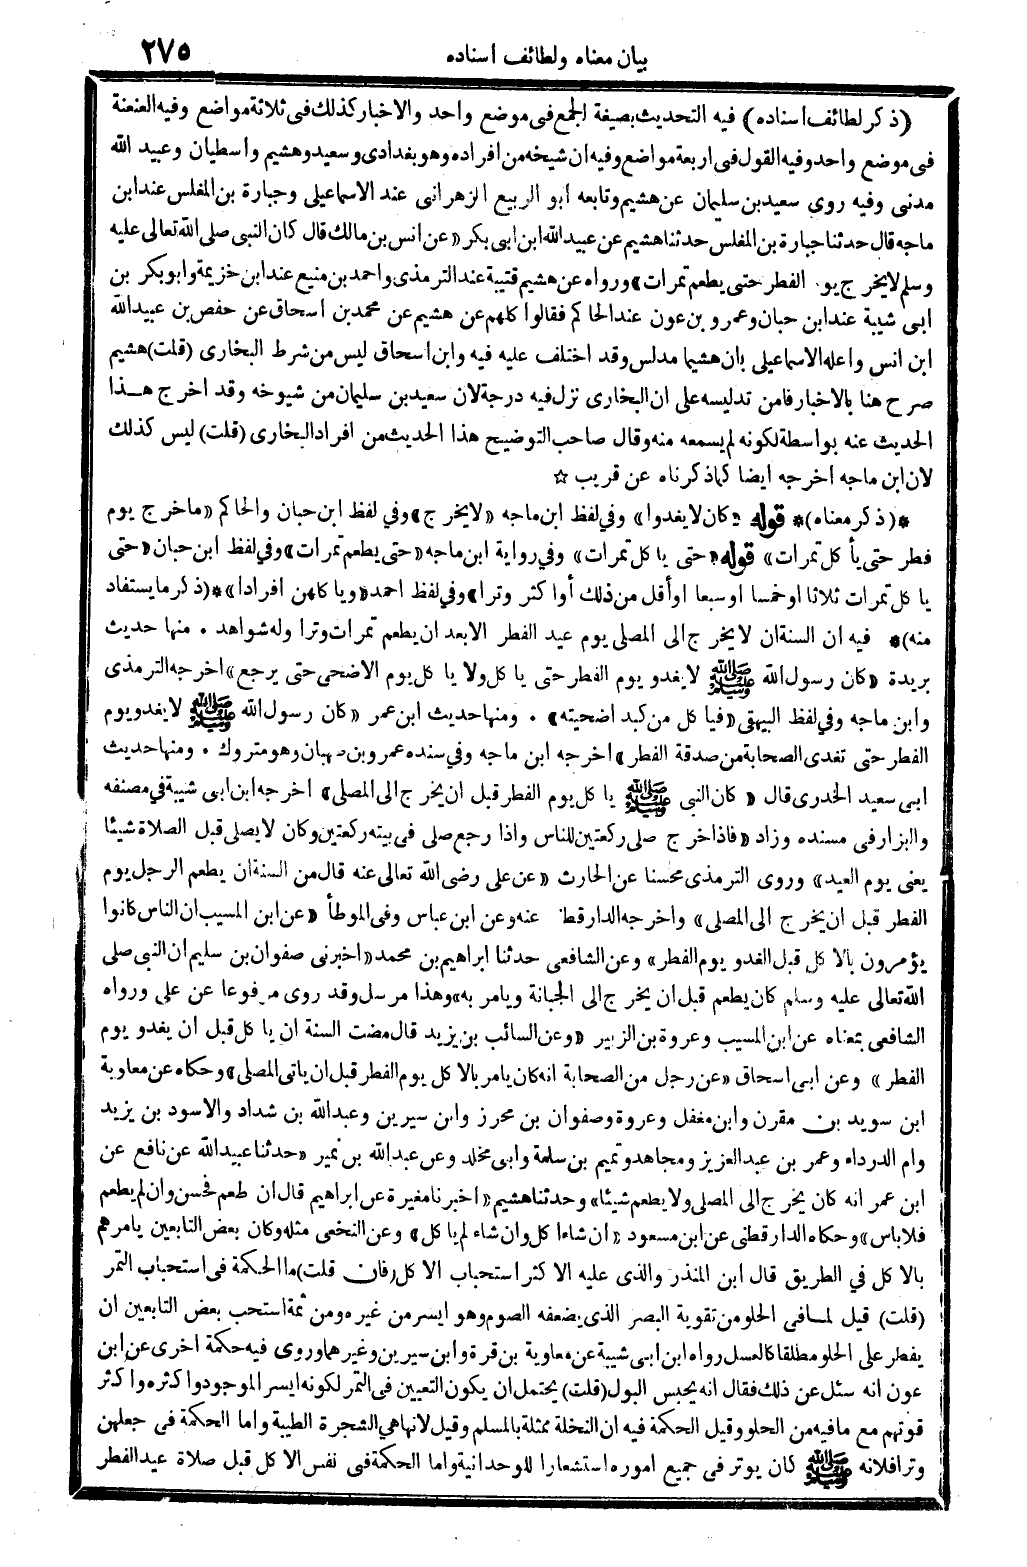 ٢٧٥
بيان معناه ولطائف اسناده
(ذكر لطائف اسناده) فيه التحديث بصيغة الجمع فى موضع واحد والاخبار كذلك فى ثلاثة مواضع وفيه العنعنة
فى موضع واحد وفيه القول فى اربعة مواضع وفيه ان شيخه من افراده وهو بغدادى وسعيد وهشيم واسطيان وعبيد الله
مدنى وفيه روى سعيد بن سليمان عن هشيم وتابعه أبو الربيع الزهرانى عند الاسماعيلى وجبارة بن المغلس عند ابن
ماجه قال حدثنا جبارة بن المغلس حدثنا هشيم عن عبيد الله ابن ابى بكر «عن انس بن مالك قال كان النبى صلى الله تعالى عليه
وسلم لا يخرج يو. الفطر حتى يطعم تمرات» ورواه عن هشيم قتيبة عند الترمذى واحمد بن منيع عند ابن خزيمة وابو بكر بن
ابى شيبة عند ابن حبان وعمرو بن عون عند الحاكم فقالوا كلهم عن هشيم عن محمد بن اسحاق عن حفص بن عبيد الله
ابن انس واعله الاسماعيلى بان هشيما مدلس وقد اختلف عليه فيه وابن اسحاق ليس من شرط البخارى (قلت) هشيم
صرح هنا بالاخبار فامن تدليسه على ان البخارى نزل فيه درجة لان سعيد بن سليمان من شيوخه وقد اخرج هــذا
الحديث عنه بواسطة لكونه لم يسمعه منه وقال صاحب التوضيح هذا الحديث من افراد البخارى (قلت) ليس كذلك
لان ابن ماجه اخرجه ايضا كما ذكرناه عن قريب ☆
*(ذكر معناه)* قوله «كان لا يغدوا» وفي لفظ ابن ماجه «لا يخرج» وفي لفظ ابن حبان والحاكم «ما خرج يوم
فطر حتى يأكل تمرات» قوله «حتى ياكل تمرات» وفي رواية ابن ماجه «حتى يطعم تمرات» وفي لفظ ابن حبان «حتى
ياكل تمرات ثلاثا او خمسا او سبعا او أقل من ذلك أو اكثر وترا» وفي لفظ احمد «وياكلهن افرادا» *(ذكر ما يستفاد
منه)* فيه ان السنة ان لا يخرج الى المصلى يوم عيد الفطر الا بعد ان يطعم تمرات وترا وله شواهد . منها حديث
بريدة «كان رسول الله ﷺ لا يغدو يوم الفطر حتى ياكل ولا ياكل يوم الاضحى حتى يرجع» اخرجه الترمذى
وابن ماجه وفي لفظ البيهقى «فياكل من كبد اضحيته» . ومنها حديث ابن عمر «كان رسول الله ﷺ لا يغدو يوم
الفطر حتى تغدى الصحابة من صدقة الفطر» اخرجه ابن ماجه وفي سنده عمرو بن صهبان وهو متروك . ومنها حديث
ابى سعيد الخدرى قال «كان النبى ﷺ ياكل يوم الفطر قبل ان يخرج الى المصلى» اخرجه ابن ابى شيبة في مصنفه
والبزار فى مسنده وزاد «فاذا خرج صلى ركعتين للناس واذا رجع صلى فى بيته ركعتين وكان لا يصلى قبل الصلاة شيئا
يعنى يوم العيد» وروى الترمذى محسنا عن الحارث «عن على رضى الله تعالى عنه قال من السنة ان يطعم الرجل يوم
الفطر قبل ان يخرج الى المصلى» واخرجه الدارقط عنه وعن ابن عباس وفى الموطأ «عن ابن المسيب ان الناس كانوا
يؤمرون بالاكل قبل الغدو يوم الفطر» وعن الشافعى حدثنا ابراهيم بن محمد «اخبرنى صفوان بن سليم ان النبى صلى
الله تعالى عليه وسلم كان يطعم قبل ان يخرج الى الجبانة ويامر به» وهذا مرسل وقد روى مرفوعا عن على ورواه
الشافعى بمعناه عن ابن المسيب وعروة بن الزبير «وعن السائب بن يزيد قال مضت السنة ان ياكل قبل ان يغدو يوم
الفطر» وعن ابى اسحاق «عن رجل من الصحابة انه كان يامر بالاكل يوم الفطر قبل ان ياتى المصلى» وحكاه عن معاوية
ابن سويد بن مقرن وابن مغفل وعروة وصفوان بن محرز وابن سيرين وعبد الله بن شداد والاسود بن يزيد
وام الدرداء وعمر بن عبد العزيز ومجاهد وتميم بن سلمة وابى مخلد وعن عبد الله بن نمير «حدثنا عبيد الله عن نافع عن
ابن عمر انه كان يخرج الى المصلى ولا يطعم شيئا» وحدثنا هشيم «اخبرنا مغيرة عن ابراهيم قال ان طعم فحسن وان لم يطعم
فلا باس» وحكاه الدارقطنى عن ابن مسعود «ان شاء اكل وان شاء لم ياكل» وعن النخعى مثله وكان بعض التابعين يامرهم
بالاكل في الطريق قال ابن المنذر والذى عليه الاكثر استحباب الاكل (فان قلت) ما الحكمة فى استحباب التمر
(قلت) قيل لما فى الحلو من تقوية البصر الذى يضعفه الصوم وهو ايسر من غيره ومن ثمة استحب بعض التابعين ان
يفطر على الحلو مطلقا كالعسل رواه ابن ابى شيبة عن معاوية بن قرة وابن سيرين وغيرهما وروى فيه حكمة اخرى عن ابن
عون انه سئل عن ذلك فقال انه يحبس البول (قلت) يحتمل ان يكون التعيين فى التمر لكونه ايسر الموجود واكثره واكثر
قوتهم مع ما فيه من الحلو وقيل الحكمة فيه ان النخلة ممثلة بالمسلم وقيل لانها هي الشجرة الطيبة واما الحكمة فى جعلهن
وترا فلانه ﷺ كان يوتر فى جميع اموره استشعارا للوحدانية واما الحكمة فى نفس الاكل قبل صلاة عيد الفطر